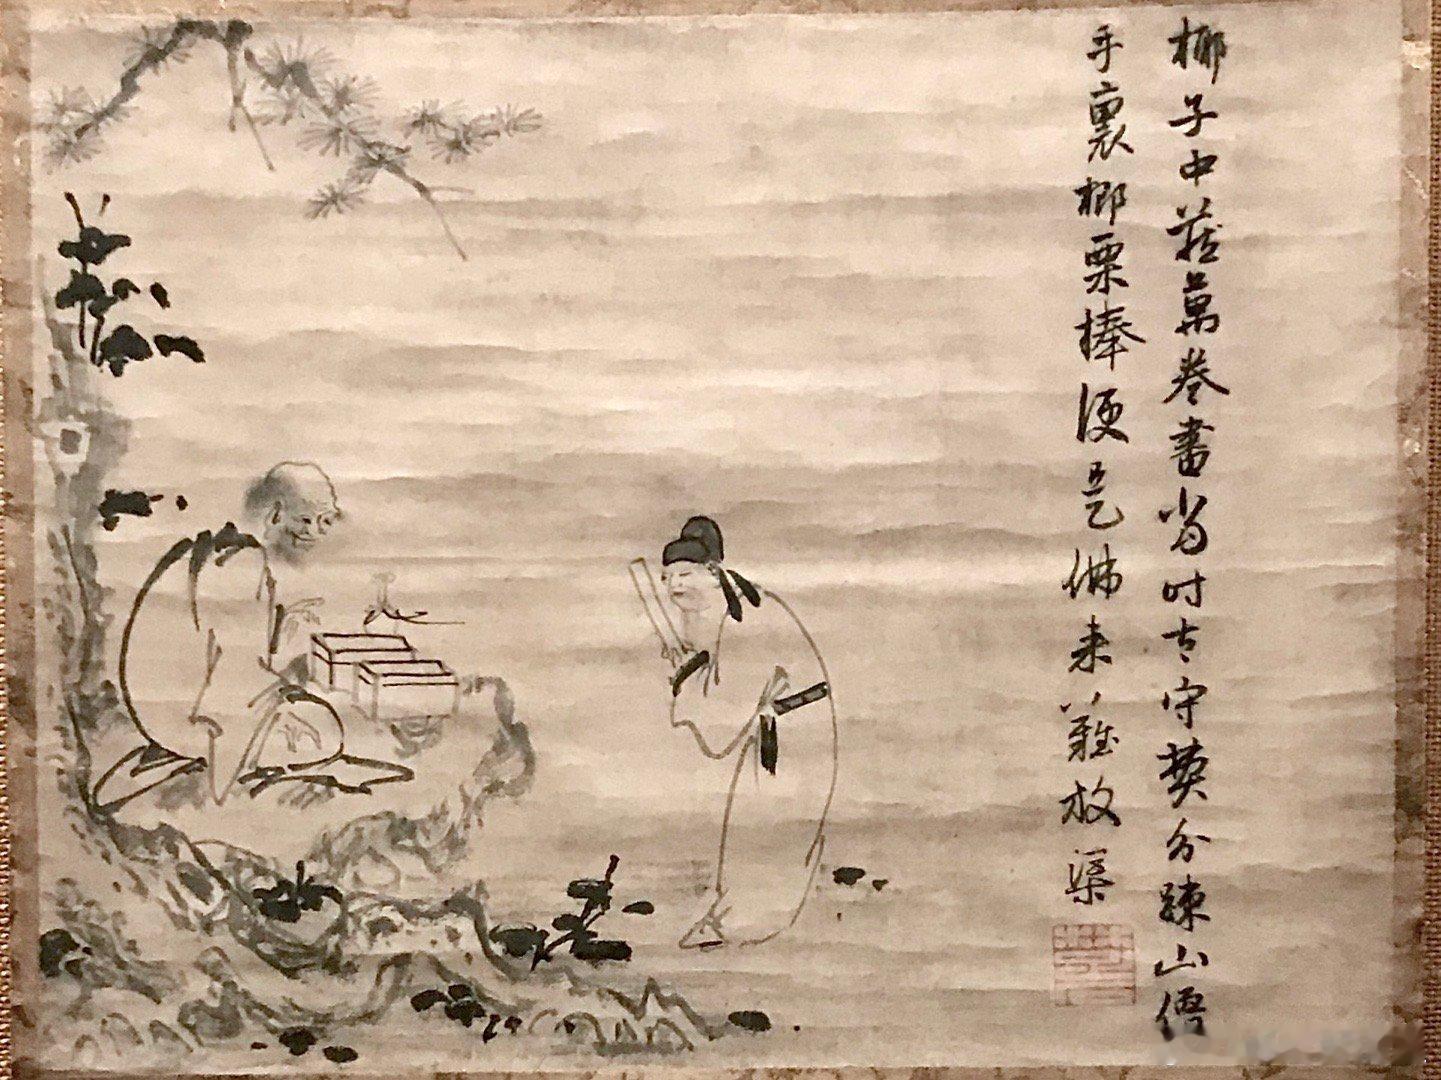 椰子中藏萬卷書當時太守焚分疎山僧
手裏榔栗棒便是佛來難放渠